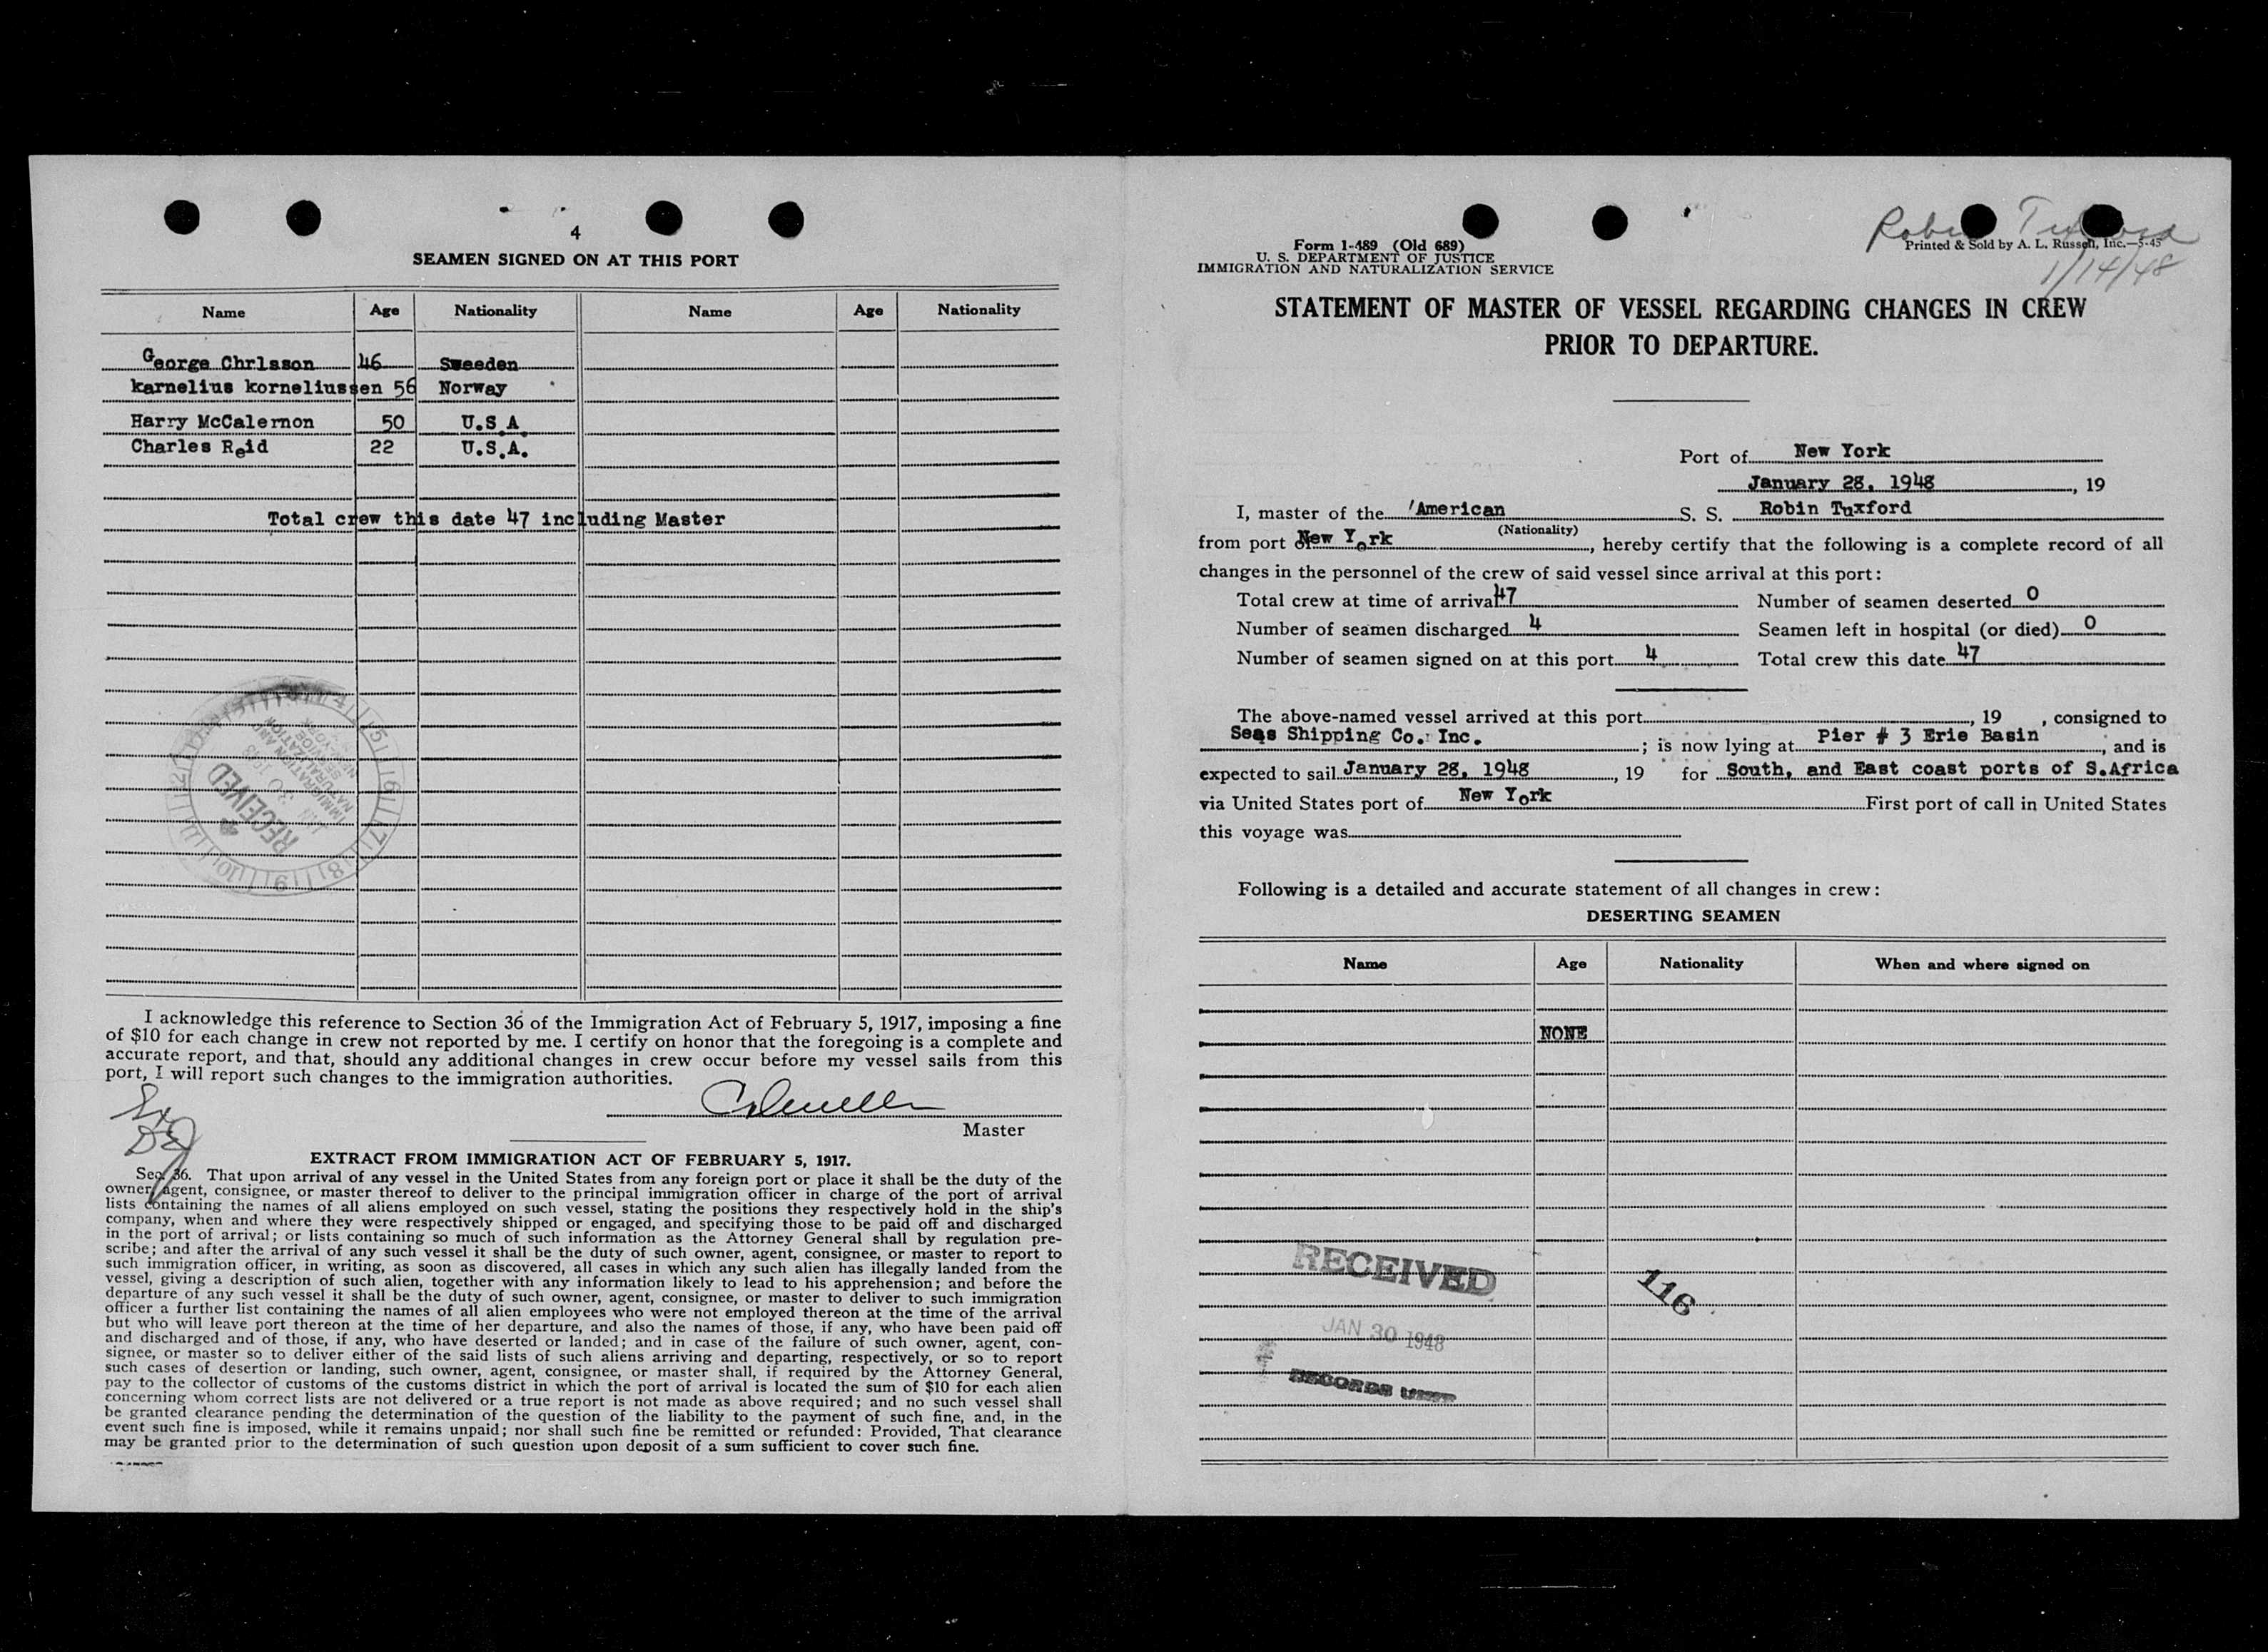 4
SEAMEN SIGNED ON AT THIS PORT
Name Age Nationality Name Age Nationality
George Chrlsson 46 Sweeden
karnelius korneliussen 56 Norway
Harry McCalernon 50 U.S.A.
Charles Reid 22 U.S.A.
Total crew this date 47 including Master
RECEIVED
I acknowledge this reference to Section 36 of the Immigration Act of February 5, 1917, imposing a fine
of $10 for each change in crew not reported by me. I certify on honor that the foregoing is a complete and
accurate report, and that, should any additional changes in crew occur before my vessel sails from this
port, I will report such changes to the immigration authorities.
Master
EXTRACT FROM IMMIGRATION ACT OF FEBRUARY 5, 1917.
Sec. 36. That upon arrival of any vessel in the United States from any foreign port or place it shall be the duty of the
owner, agent, consignee, or master thereof to deliver to the principal immigration officer in charge of the port of arrival
lists containing the names of all aliens employed on such vessel, stating the positions they respectively hold in the ship's
company, when and where they were respectively shipped or engaged, and specifying those to be paid off and discharged
in the port of arrival; or lists containing so much of such information as the Attorney General shall by regulation pre-
scribe; and after the arrival of any such vessel it shall be the duty of such owner, agent, consignee, or master to report to
such immigration officer, in writing, as soon as discovered, all cases in which any such alien has illegally landed from the
vessel, giving a description of such alien, together with any information likely to lead to his apprehension; and before the
departure of any such vessel it shall be the duty of such owner, agent, consignee, or master to deliver to such immigration
officer a further list containing the names of all alien employees who were not employed thereon at the time of the arrival
but who will leave port thereon at the time of her departure, and also the names of those, if any, who have been paid off
and discharged and of those, if any, who have deserted or landed; and in case of the failure of such owner, agent, con-
signee, or master so to deliver either of the said lists of such aliens arriving and departing, respectively, or so to report
such cases of desertion or landing, such owner, agent, consignee, or master shall, if required by the Attorney General,
pay to the collector of customs of the customs district in which the port of arrival is located the sum of $10 for each alien
concerning whom correct lists are not delivered or a true report is not made as above required; and no such vessel shall
be granted clearance pending the determination of the question of the liability to the payment of such fine, and, in the
event such fine is imposed, while it remains unpaid; nor shall such fine be remitted or refunded: Provided, That clearance
may be granted prior to the determination of such question upon deposit of a sum sufficient to cover such fine.
Robin Tuxford
1/14/48
Form 1-489 (Old 689)
U. S. DEPARTMENT OF JUSTICE
IMMIGRATION AND NATURALIZATION SERVICE
Printed & Sold by A. L. Russell, Inc.—5-45
STATEMENT OF MASTER OF VESSEL REGARDING CHANGES IN CREW
PRIOR TO DEPARTURE.
Port of New York
January 28, 1948, 19
I, master of the American S. S. Robin Tuxford
(Nationality)
from port of New York, hereby certify that the following is a complete record of all
changes in the personnel of the crew of said vessel since arrival at this port:
Total crew at time of arrival 47 Number of seamen deserted 0
Number of seamen discharged 4 Seamen left in hospital (or died) 0
Number of seamen signed on at this port 4 Total crew this date 47
The above-named vessel arrived at this port, 19 , consigned to
Seas Shipping Co. Inc. ; is now lying at Pier # 3 Erie Basin, and is
expected to sail January 28, 1948, 19 for South, and East coast ports of S.Africa
via United States port of New York First port of call in United States
this voyage was
Following is a detailed and accurate statement of all changes in crew:
DESERTING SEAMEN
Name Age Nationality When and where signed on
NONE
RECEIVED
116
JAN 30 1948
RECORDS UNIT